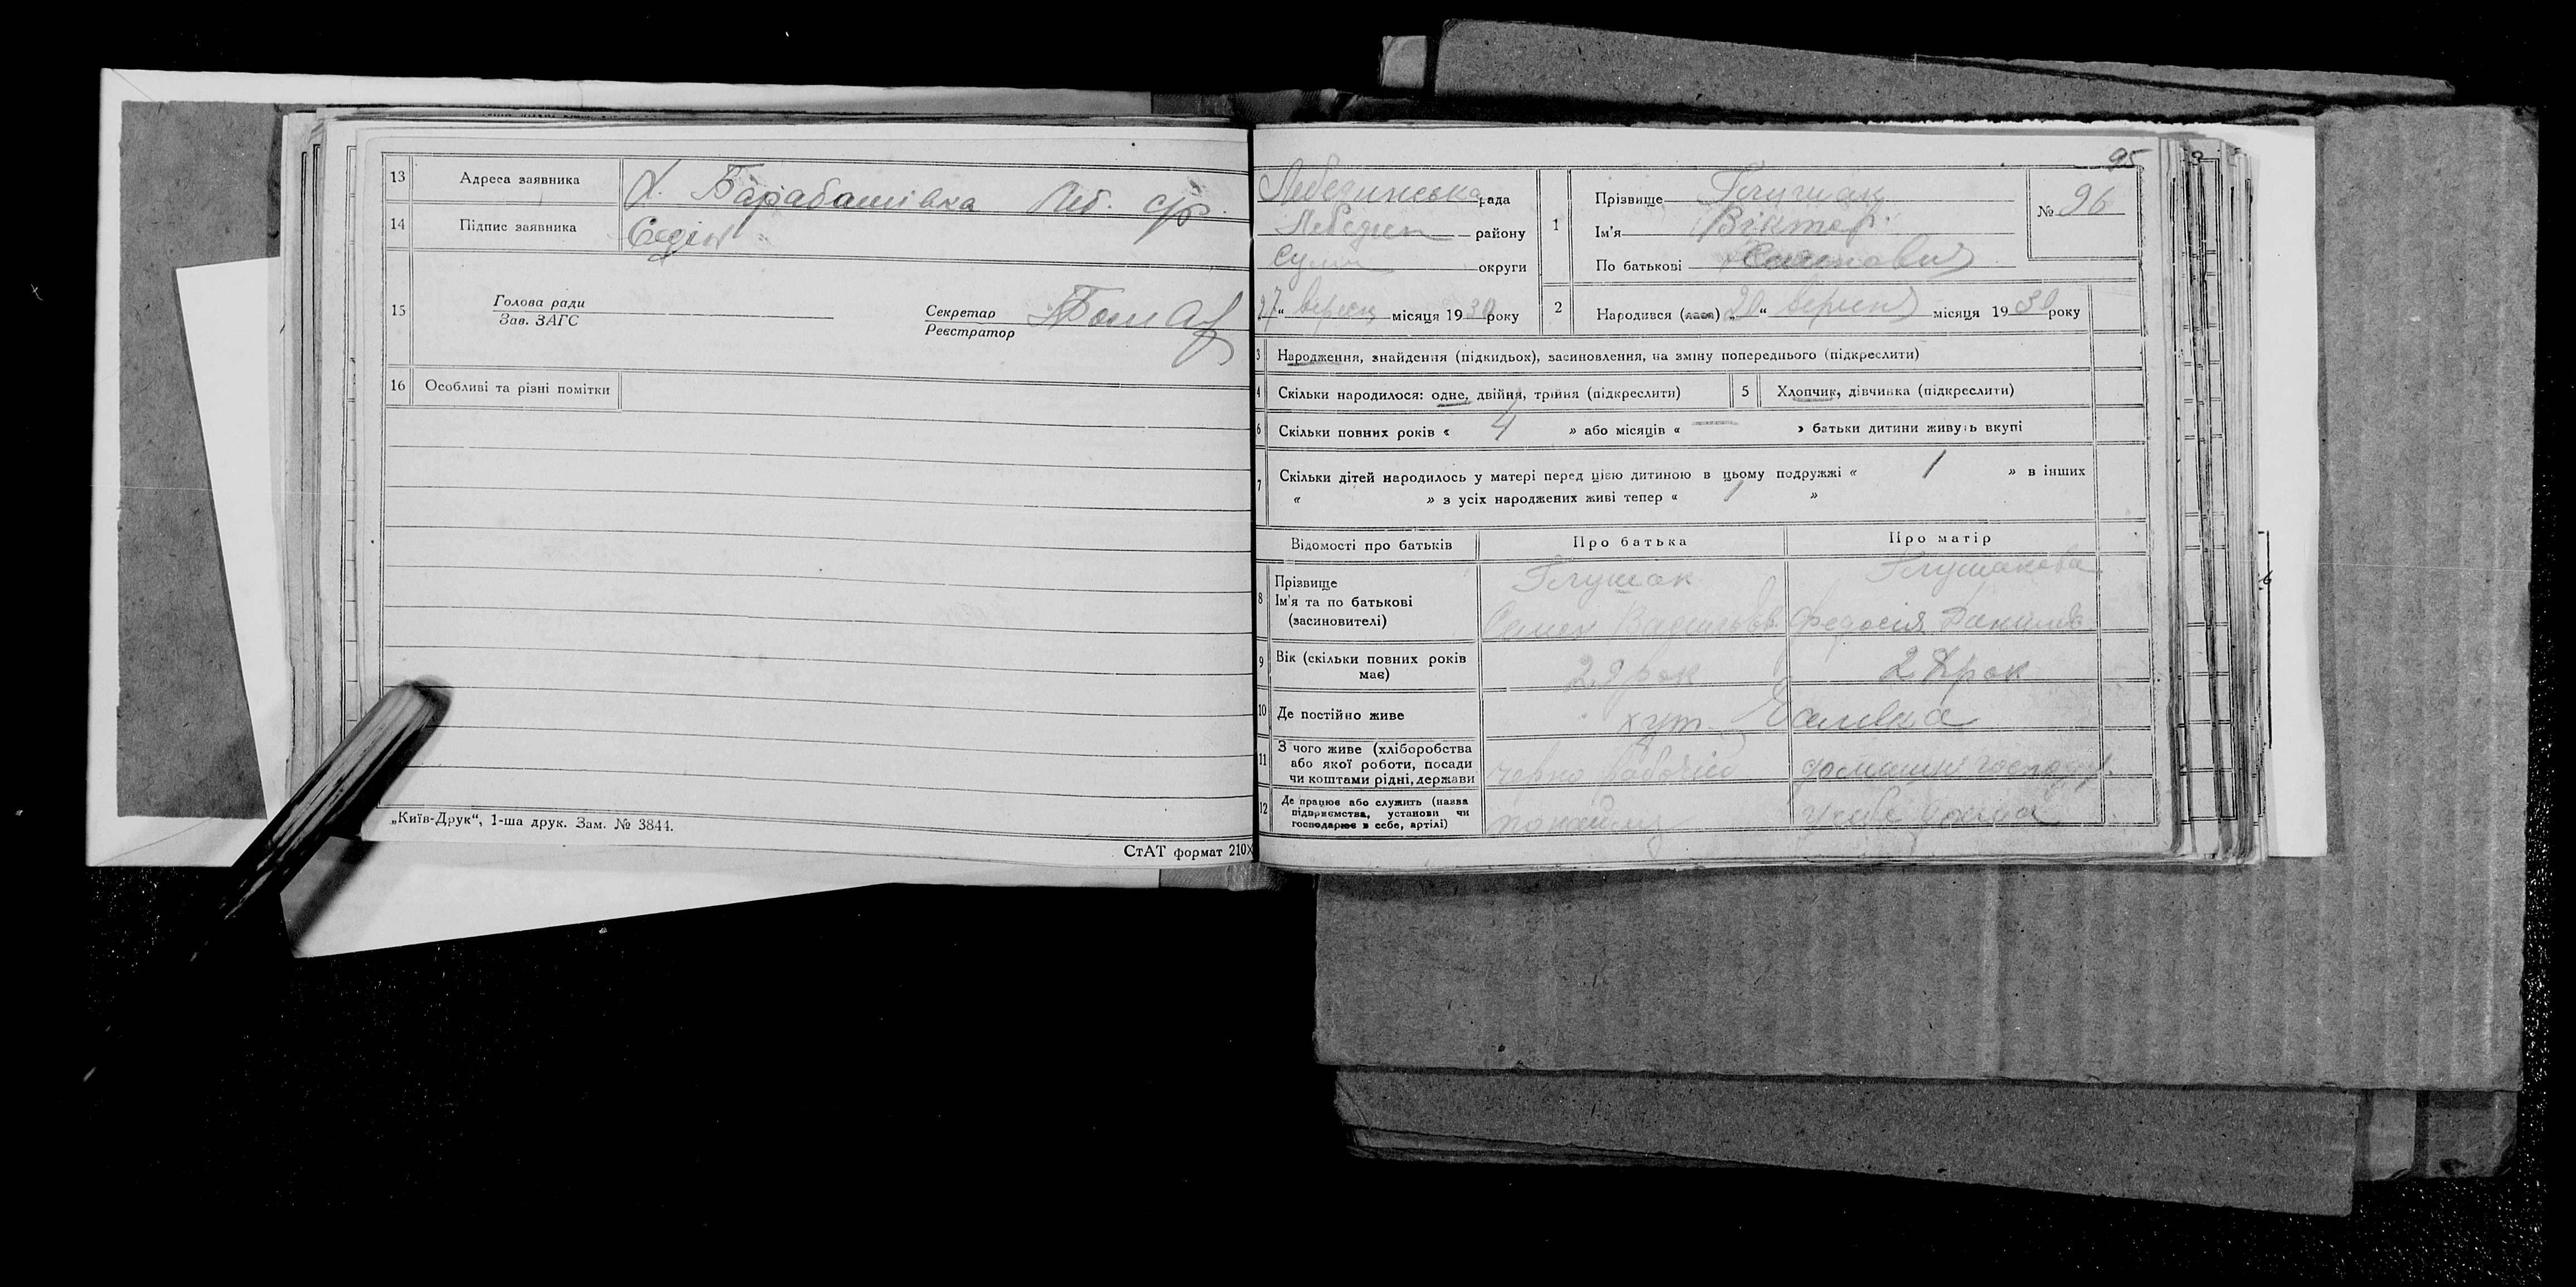 13 Адреса заявника Х. Барабашівка Леб. с/р.
14 Підпис заявника
15 Голова ради
Зав. ЗАГС
Секретар
Реєстратор
16 Особливі та різні помітки
„Київ-Друк“, 1-ша друк. Зам. № 3844.
СтАТ формат 210×
95
Лебединська рада
Лебедин району
Сумск округи
27 „ вересн місяця 1930 року
1 Прізвище Глушак
Ім'я Віктор
По батькові Семенович
№ 96
2 Народився (лася) „20“ вересня місяця 1930 року
3 Народження, знайдення (підкидьок), засиновлення, на зміну попереднього (підкреслити)
4 Скільки народилося: одне, двійня, трійня (підкреслити)
5 Хлопчик, дівчинка (підкреслити)
6 Скільки повних років « 4 » або місяців « — » батьки дитини живуть вкупі
7 Скільки дітей народилось у матері перед цією дитиною в цьому подружжі « 1 » в інших
« » з усіх народжених живі тепер « 1 »
Відомості про батьків Про батька Про матір
8 Прізвище Глушак Глушакова
Ім'я та по батькові
(засиновителі) Семен Васильов. Федосія Данилов
9 Вік (скільки повних років
має) 29 рок 28 рок
10 Де постійно живе хут.
11 З чого живе (хліборобства
або якої роботи, посади
чи коштами рідні, держави чорно рабочий домашнє господар.
12 Де працює або служить (назва
підприємства, установи чи
господарює в себе, артілі) по найму у себе дома